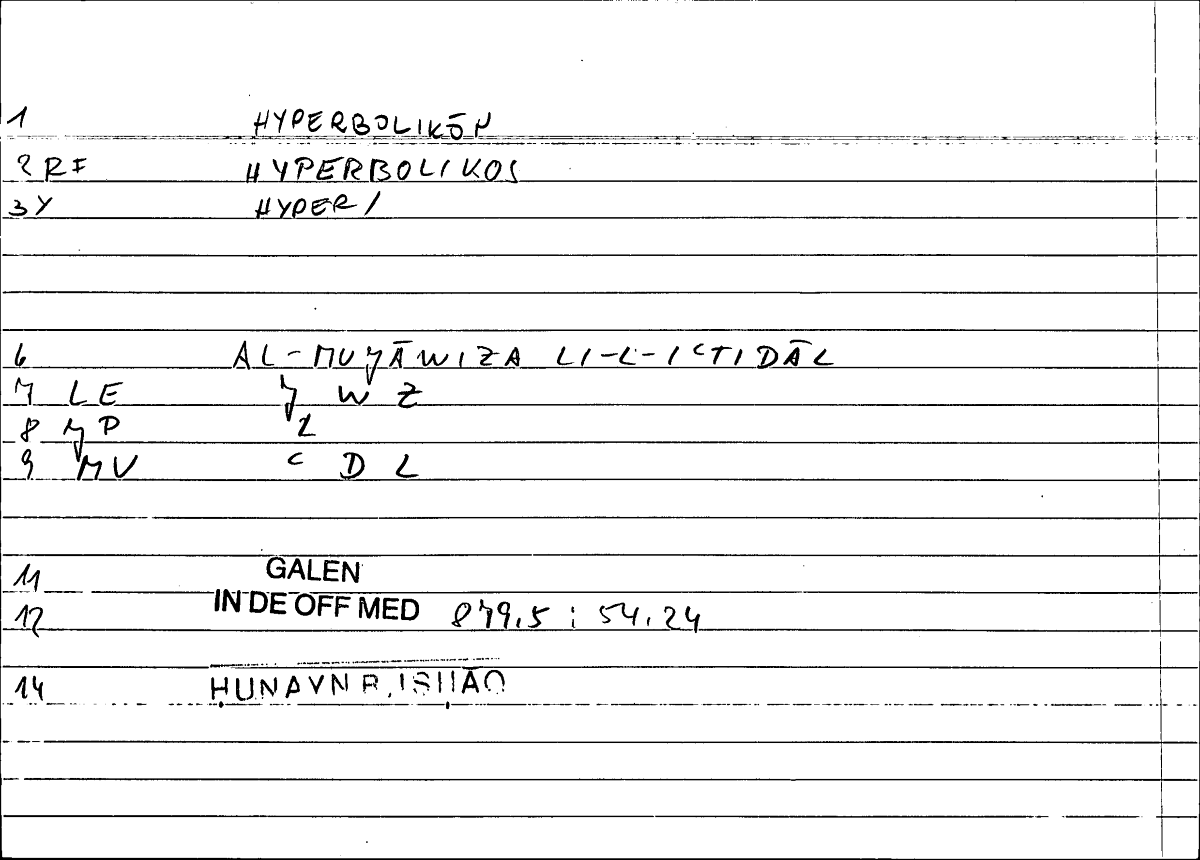 1 HYPERBOLIKŌN
2 RF HYPERBOLIKOS
3 Y HYPER/
6 AL-MUǦĀWIZA LI-L-IʿTIDĀL
7 LE Ǧ W Z
8 ǦP L
9 MV ʿ D L
11 GALEN
12 IN DE OFF MED 879.5 ; 54.24
14 ḤUNAYN B. ISḤĀQ